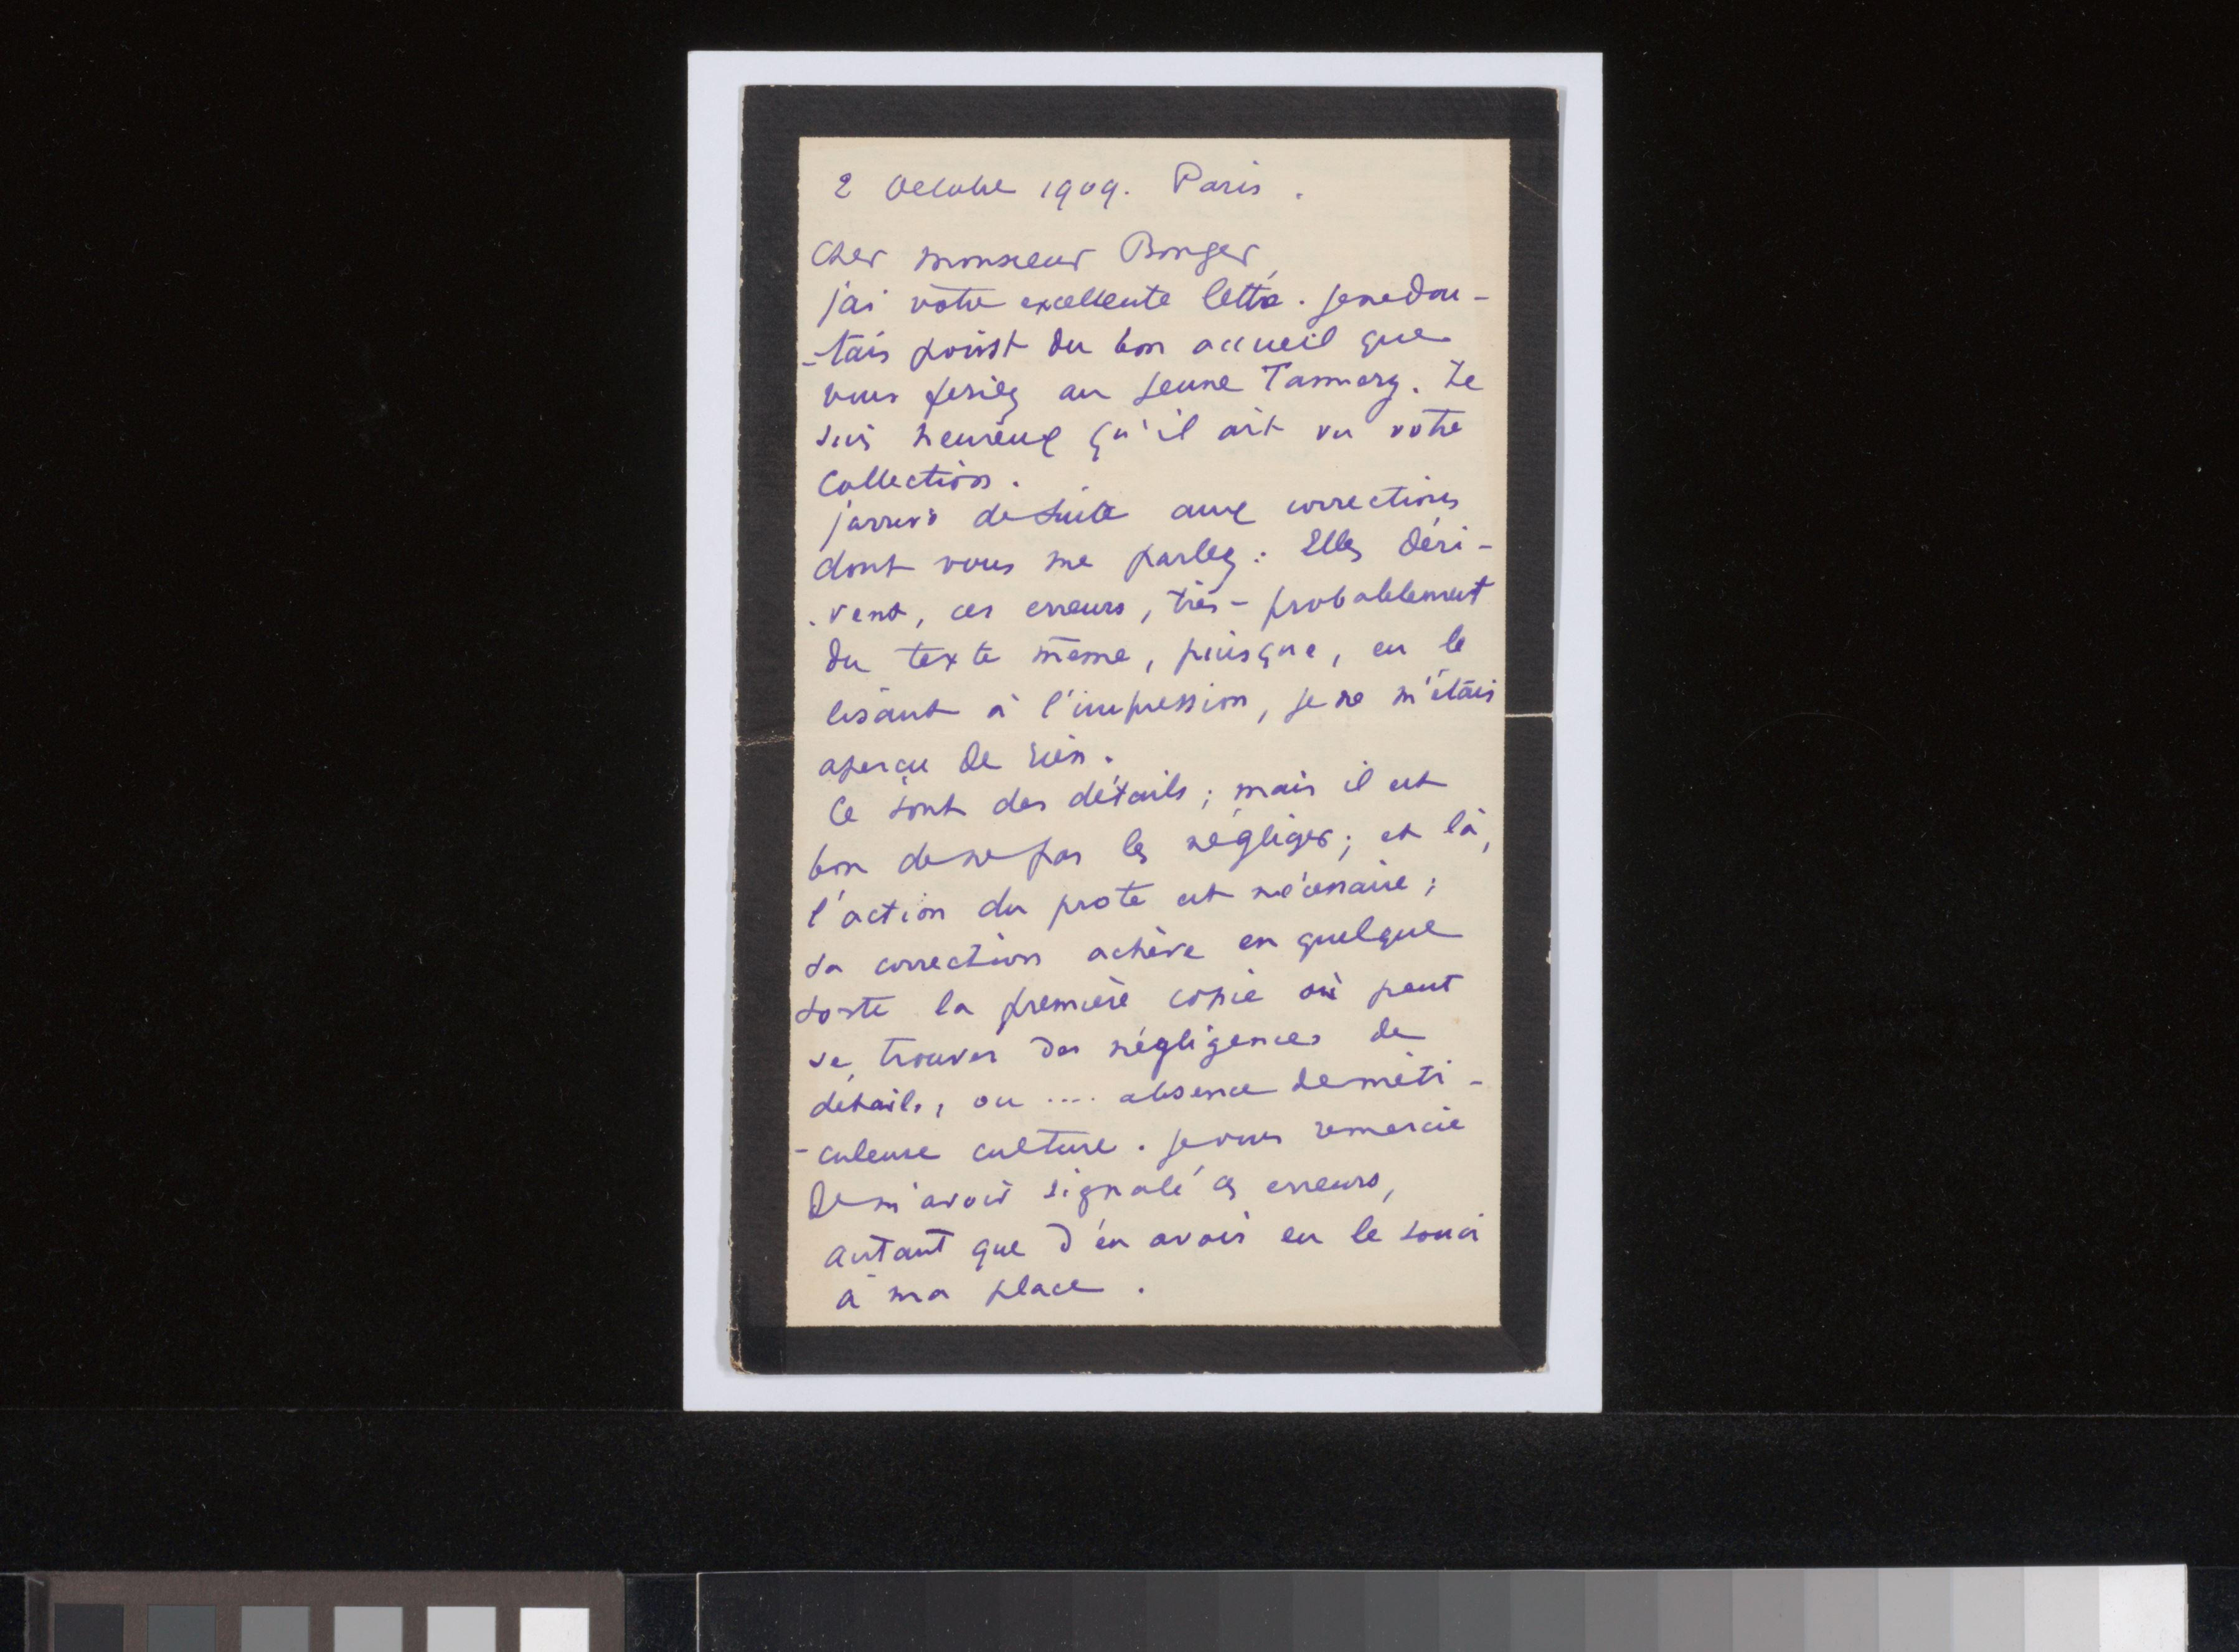 2 Octobre 1909. Paris.
Cher monsieur Bonger,
j'ai votre excellente lettre. je ne dou-
-tais point du bon accueil que
vous feriez au jeune Tannery. Je
suis heureux qu'il ait vu votre
collection.
j'arrive de suite aux corrections
dont vous me parlez : Elles déri-
-vent, ces erreurs, très-probablement
du texte même, puisque, en le
lisant à l'impression, je ne m'étais
aperçu de rien.
Ce sont des détails ; mais il est
bon de ne pas les négliger ; et là,
l'action du prote est nécessaire ;
sa correction achève en quelque
sorte la première copie où peut
se trouver des négligences de
détails, ou .... absence de méti-
-culeuse culture. je vous remercie
De m'avoir signalé ces erreurs,
autant que d'en avoir eu le souci
à ma place.